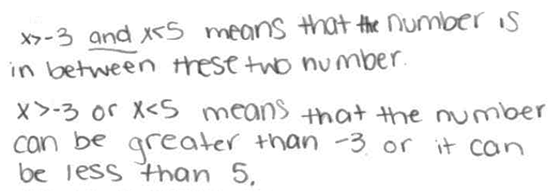 x>-3 and x<5 means that the number is
in between these two number.
x>-3 or x<5 means that the number
can be greater than -3 or it can
be less than 5.